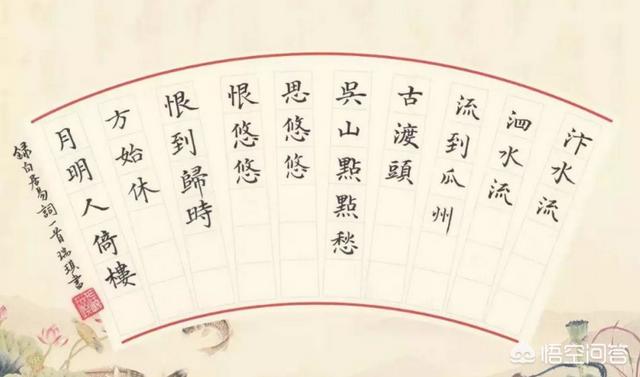 汴水流
泗水流
流到瓜州
古渡頭
吳山點點愁
思悠悠
恨悠悠
恨到歸時
方始休
月明人倚樓
錄白居易詞一首 瑞琪書
悟空问答